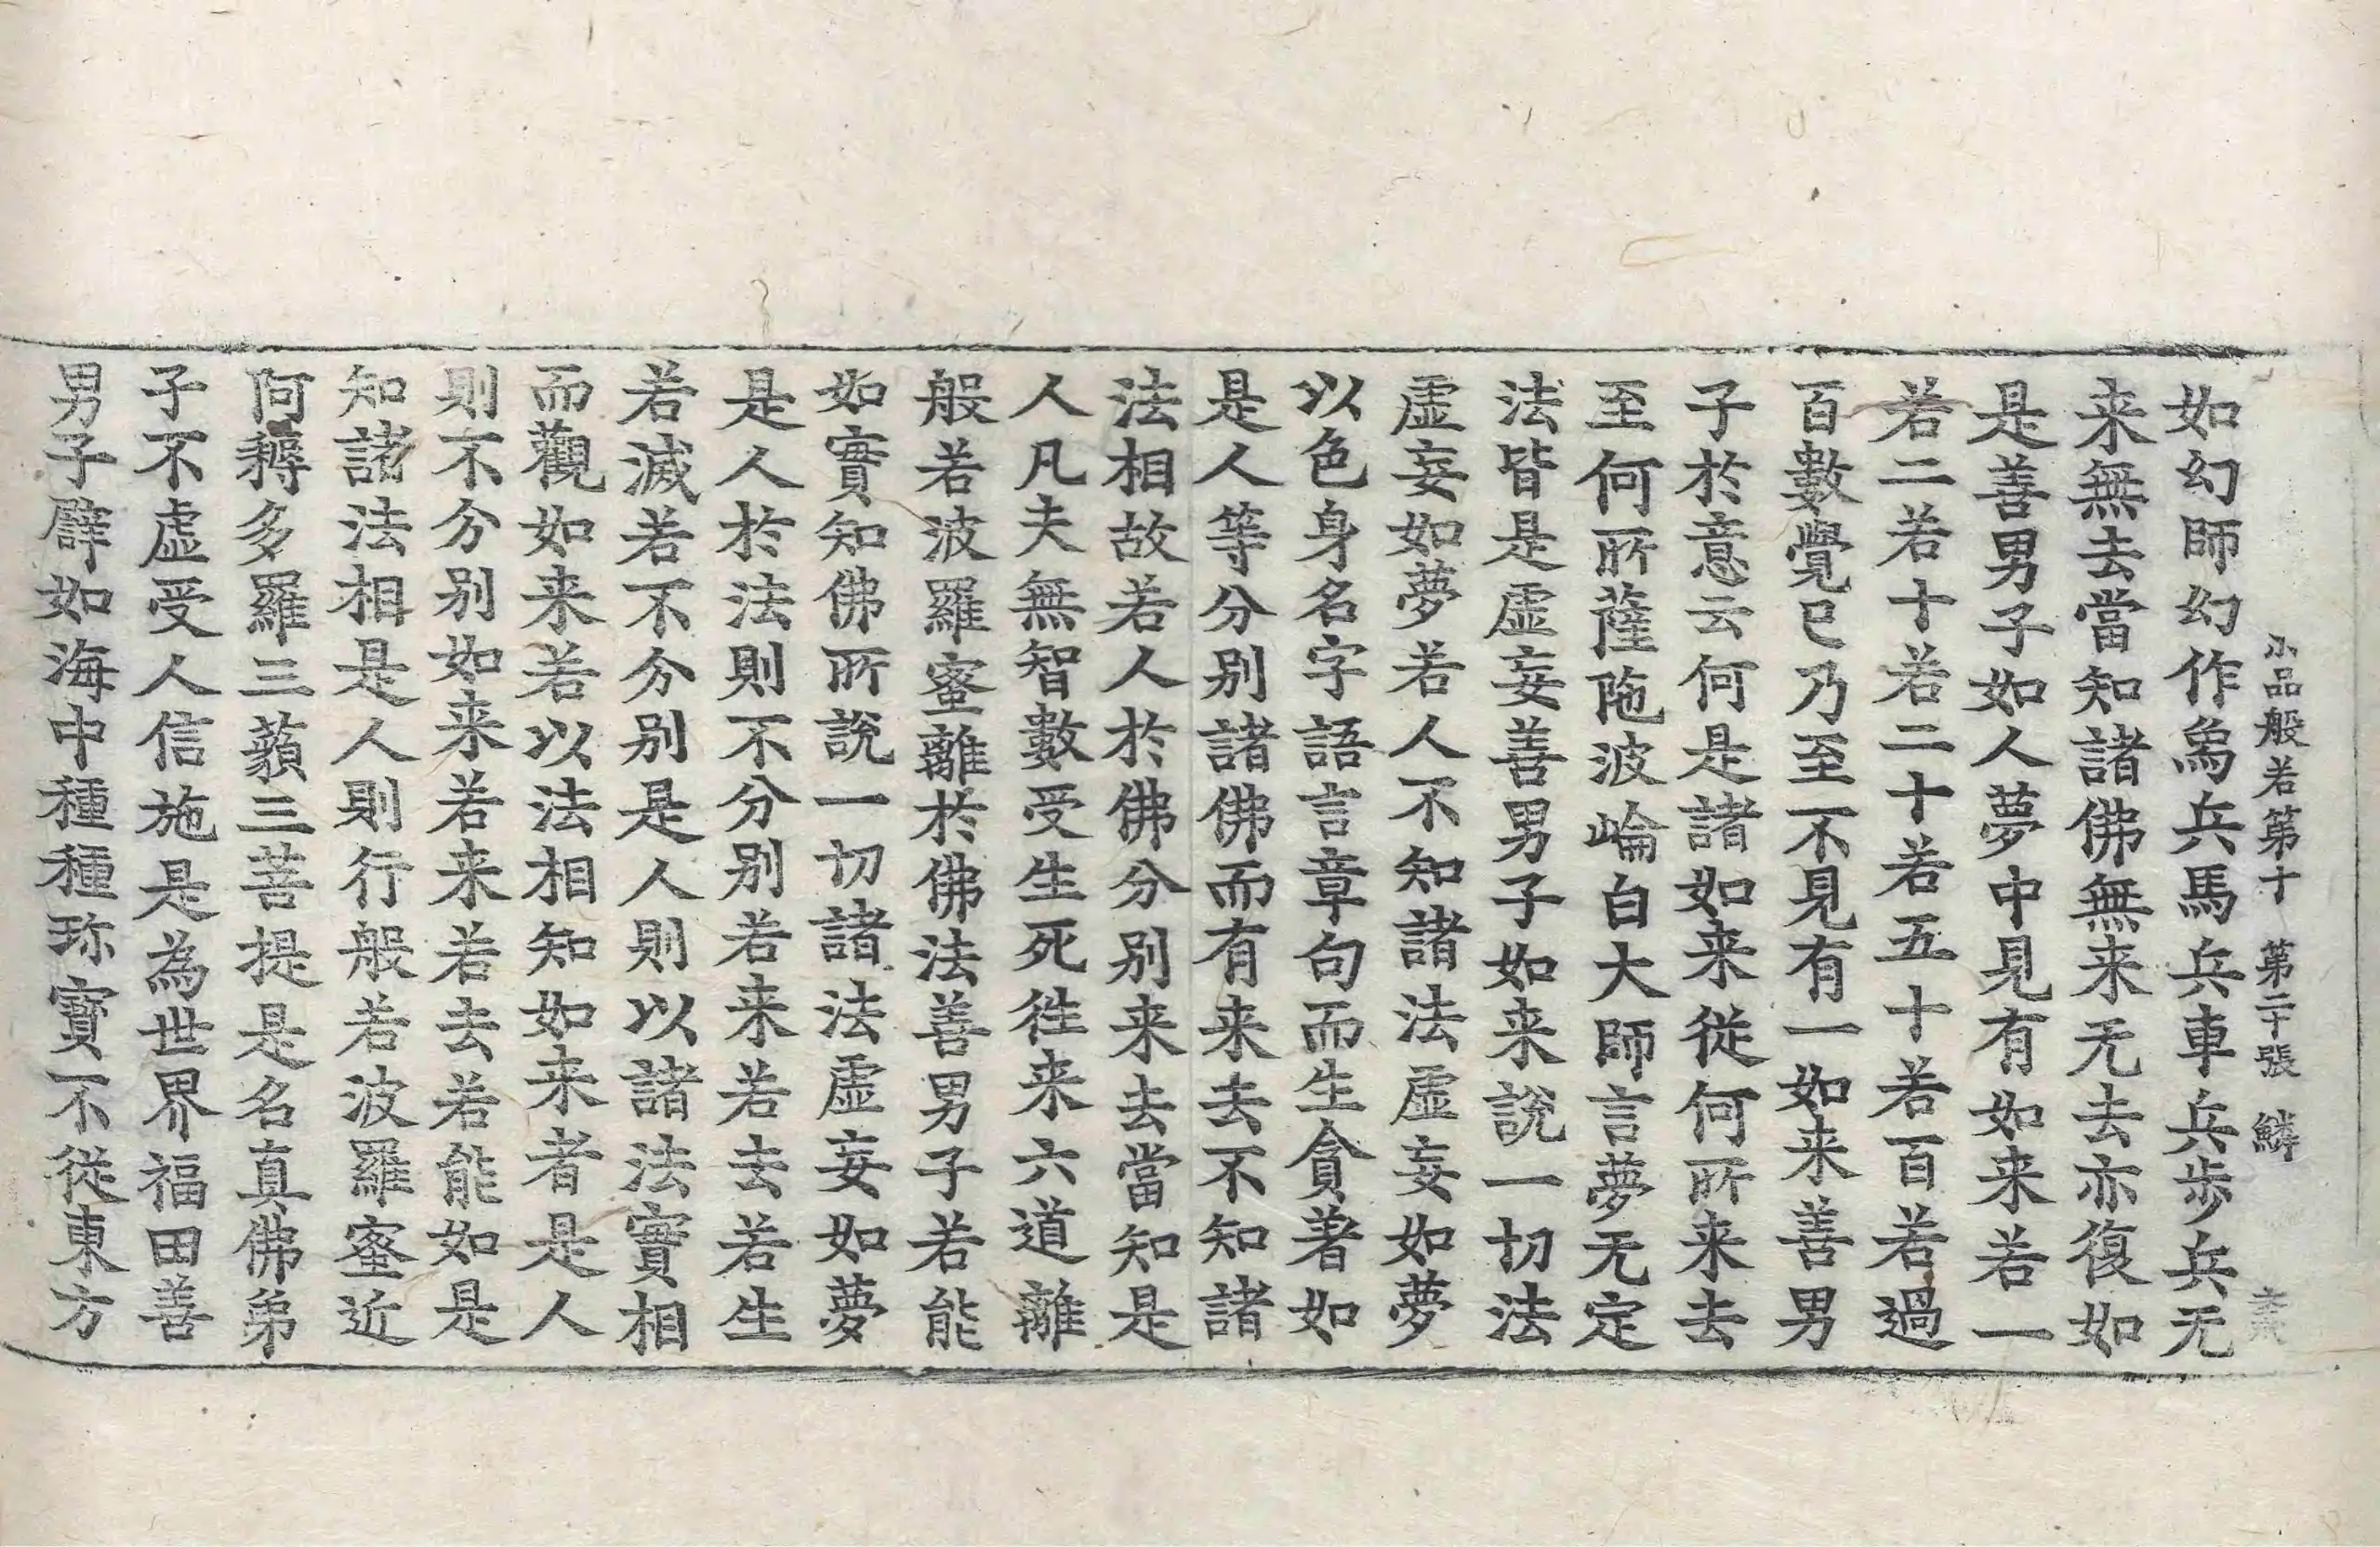 小品般若第十 第二十張 鱗
如幻師幻作象兵馬兵車兵步兵无
来無去當知諸佛無来无去亦復如
是善男子如人夢中見有如来若一
若二若十若二十若五十若百若過
百數覺已乃至不見有一如来善男
子於意云何是諸如来從何所来去
至何所薩陁波崘白大師言夢无定
法皆是虛妄善男子如来說一切法
虛妄如夢若人不知諸法虛妄如夢
以色身名字語言章句而生貪著如
是人等分别諸佛而有来去不知諸
法相故若人於佛分别来去當知是
人凡夫無智數受生死徃来六道離
般若波羅蜜離於佛法善男子若能
如實知佛所說一切諸法虛妄如夢
是人於法則不分别若来若去若生
若滅若不分别是人則以諸法實相
而觀如来若以法相知如来者是人
則不分别如来若来若去若能如是
知諸法相是人則行般若波羅蜜近
阿耨多羅三藐三菩提是名真佛弟
子不虛受人信施是為世界福田善
男子譬如海中種種珎寶不從東方